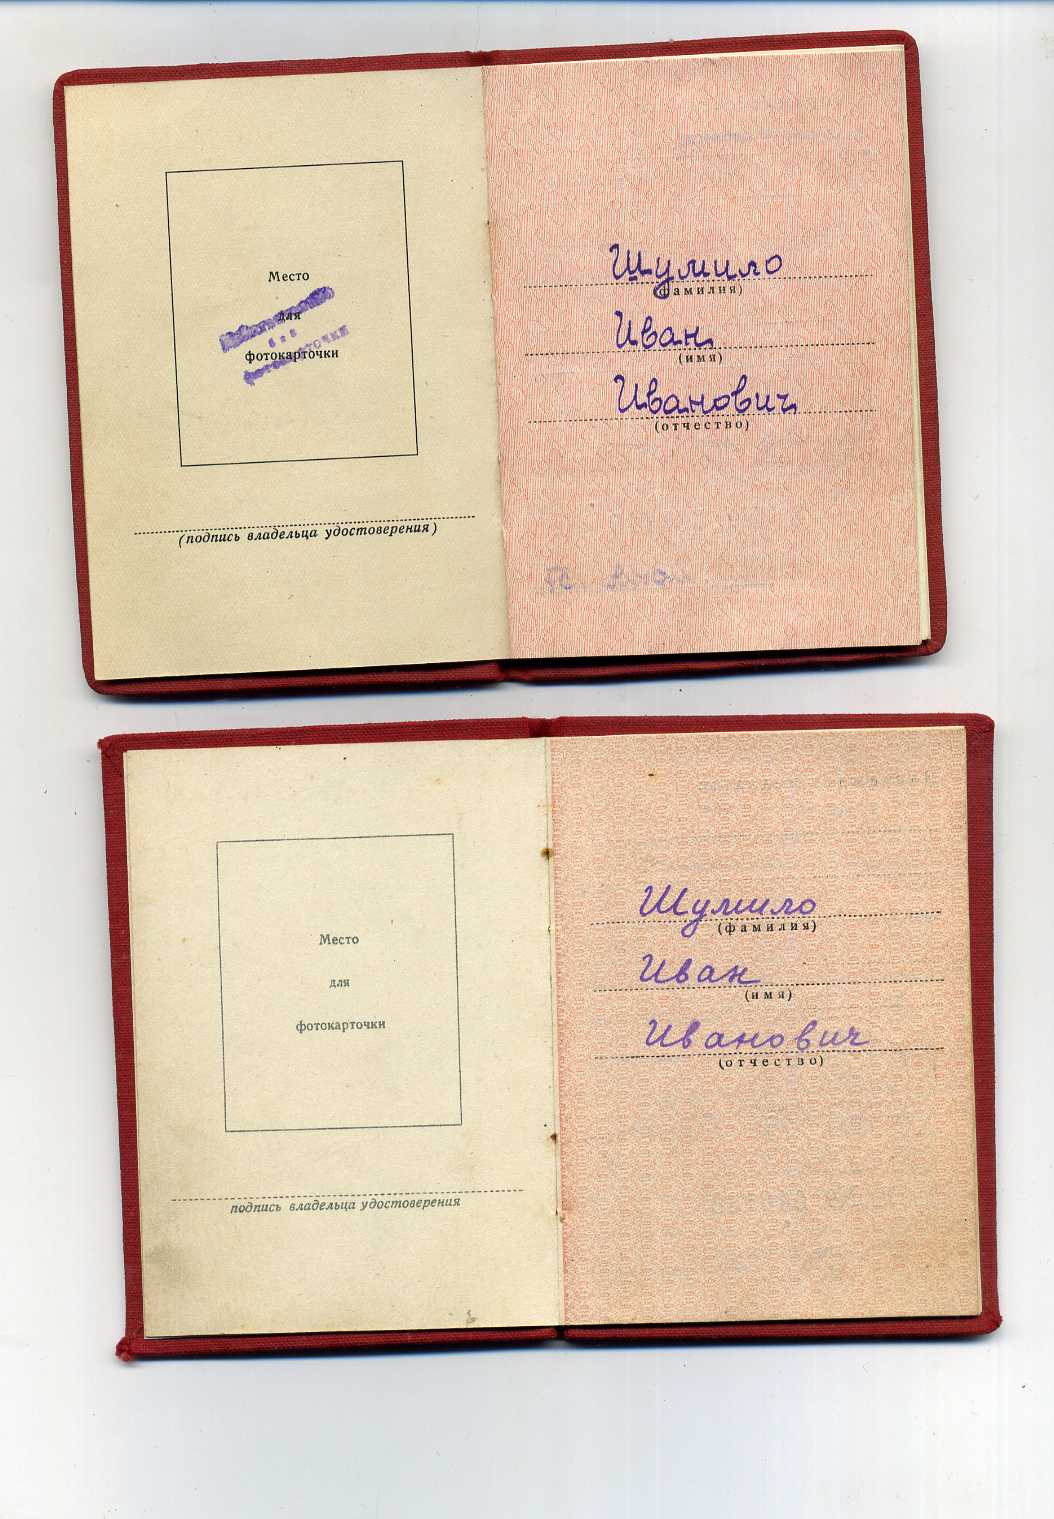 Место
для
без
фотокарточки
(подпись владельца удостоверения)
Шумило
(фамилия)
Иван
(имя)
Иванович
(отчество)
Место
для
фотокарточки
подпись владельца удостоверения
Шумило
(фамилия)
Иван
(имя)
Иванович
(отчество)